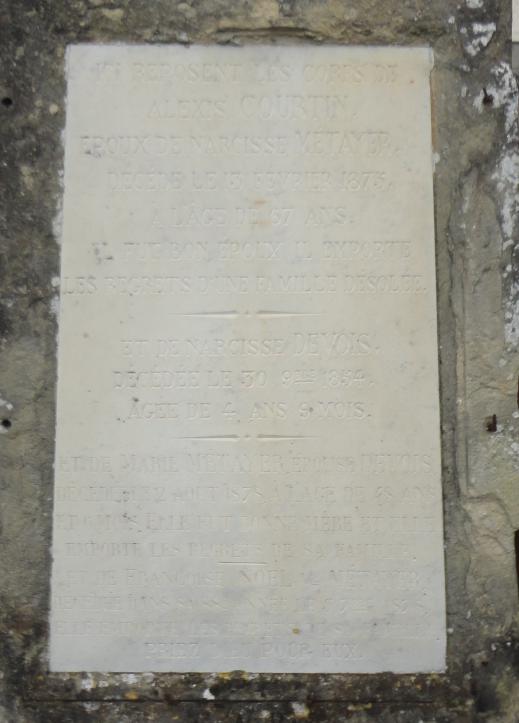 ICI REPOSENT LES CORPS DE
ALEXIS COURTIN.
EPOUX DE NARCISSE METAYER,
DÉCÉDÉ LE 13 FÉVRIER 1873.
A L'ÂGE DE 67 ANS.
IL FUT BON ÉPOUX IL EMPORTE
LES REGRETS D'UNE FAMILLE DÉSOLÉE.
ET DE NARCISSE DEVOIS.
DÉCÉDÉE LE 30 9BRE 1854.
AGEE DE 4 ANS 9 MOIS.
ET DE MARIE METAYER, ÉPOUSE DEVOIS
DÉCÉDÉE LE 2 AOUT 1878 A L'AGE DE 48 ANS
ET 6 MOIS. ELLE FUT BONNE MÈRE ET ELLE
EMPORTE LES REGRETS DE SA FAMILLE.
ET DE FRANÇOISE NOEL METAYER
DÉCÉDÉE DANS SA
ELLE EMPORTE LES
PRIEZ DIEU POUR EUX.